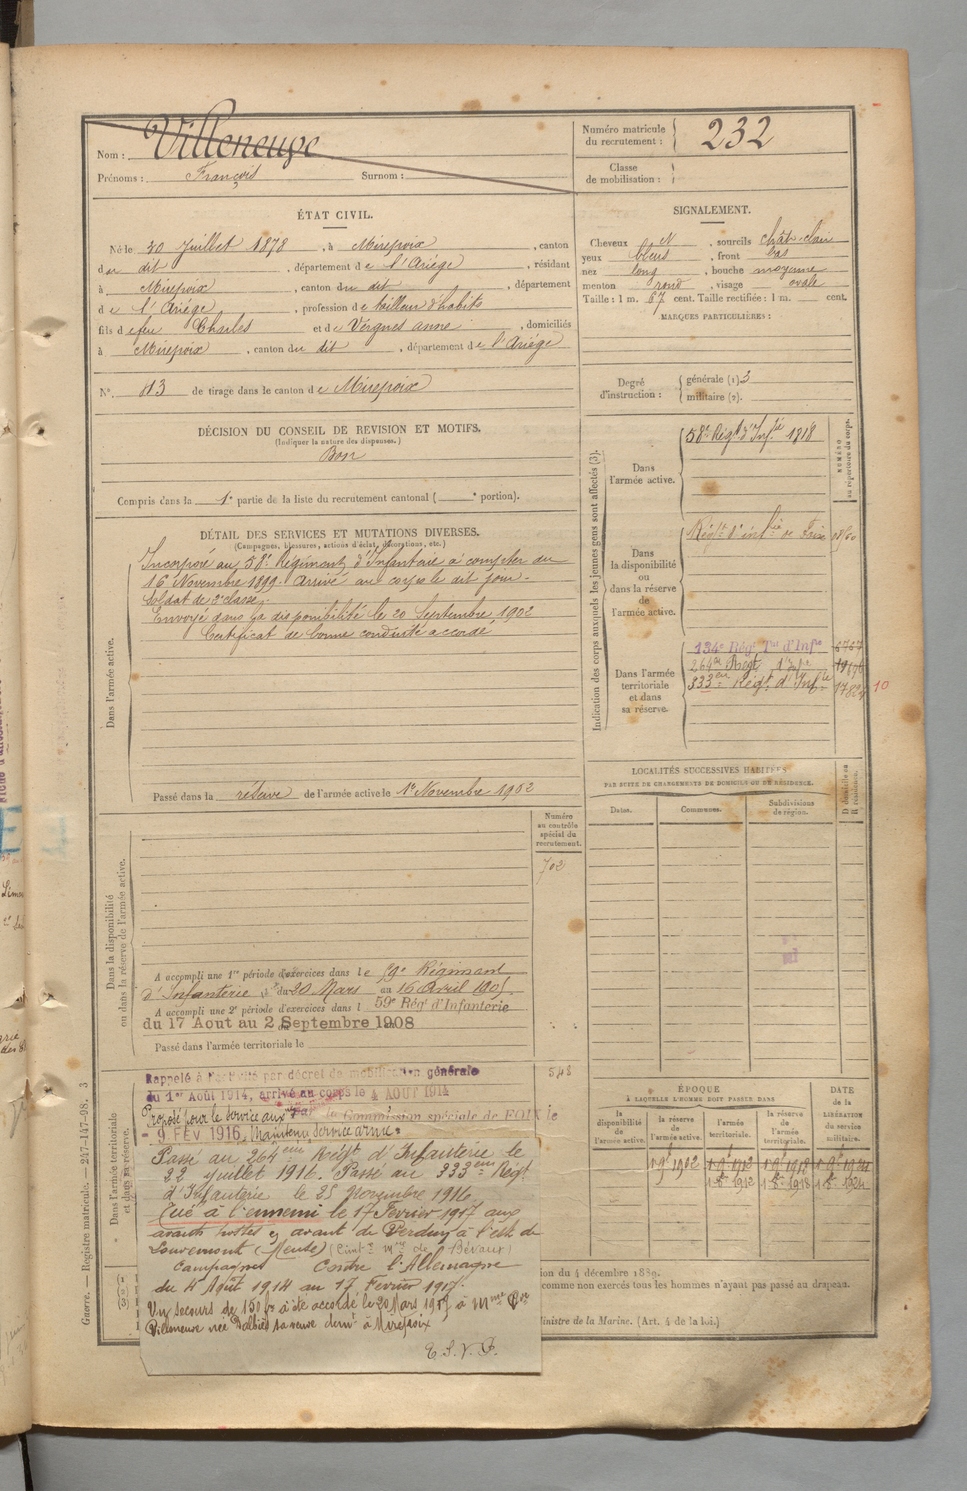 Nom : Villeneuve
Prénoms : François Surnom :
Numéro matricule du recrutement : 232
Classe de mobilisation :
ÉTAT CIVIL.
Né le 30 Juillet 1878, à Mirepoix, canton
du dit, département de l'Ariège, résidant
à Mirepoix, canton du dit, département
de l'Ariège, profession de tailleur d'habits
fils de feu Charles et de Vergnes anne, domiciliés
à Mirepoix, canton du dit, département de l'Ariège
No. 113 de tirage dans le canton de Mirepoix
DÉCISION DU CONSEIL DE REVISION ET MOTIFS.
(Indiquer la nature des dispenses.)
Bon
Compris dans la 1e partie de la liste du recrutement cantonal ( e portion).
SIGNALEMENT.
Cheveux N, sourcils chât-clair
yeux bleus, front bas
nez long, bouche moyenne
menton rond, visage ovale
Taille : 1 m. 67 cent. Taille rectifiée : 1 m. cent.
MARQUES PARTICULIÈRES :
Degré d'instruction : générale (1) 3
militaire (2).
DÉTAIL DES SERVICES ET MUTATIONS DIVERSES.
(Campagnes, blessures, actions d'éclat, décorations, etc.)
Dans l'armée active.
Incorporé au 58e Régiment d'Infanterie à compter du
16 Novembre 1899. Arrivé au corps le dit jour.
Soldat de 2e classe.
Envoyé dans la disponibilité le 20 Septembre 1902
Certificat de bonne conduite accordé
Passé dans la réserve de l'armée active le 1er Novembre 1902
Indication des corps auxquels les jeunes gens sont affectés (3).
NUMÉRO au répertoire du corps.
Dans l'armée active.
58e Régt d'Infie 1818
Dans la disponibilité ou dans la réserve de l'armée active.
Régt d'infie de Foix
Dans l'armée territoriale et dans sa réserve.
134e Régt Tal d'Infie 6767
264e Régt d'Infie
333eme Régt d'Infie
10
LOCALITÉS SUCCESSIVES HABITÉES
PAR SUITE DE CHANGEMENTS DE DOMICILE OU DE RÉSIDENCE.
Dates. Communes. Subdivisions de région. D domicile ou R résidence.
Numéro au contrôle spécial du recrutement.
702
Dans la disponibilité ou dans la réserve de l'armée active.
A accompli une 1re période d'exercices dans le 59e Régiment
d'Infanterie, du 20 Mars au 16 Avril 1905.
A accompli une 2e période d'exercices dans l 59e Régt d'Infanterie
du 17 Aout au 2 Septembre 1908
Passé dans l'armée territoriale le
Dans l'armée territoriale et dans sa réserve.
548
Rappelé à l'activité par décret de mobilisation générale
du 1er Août 1914, arrivé au corps le 4 AOUT 1914
Proposé pour le service auxre Par la Commission spéciale de FOIX le
- 9 FEV 1916, Maintenu Service armé.
Passé au 264eme Régt d'Infanterie le
22 juillet 1916. Passé au 333eme Régt
d'Infanterie le 25 Novembre 1916.
Tué à l'ennemi le 17 Février 1917 aux
avants postes en avant de Verdun à l'est de
Louvemont (Meuse) (Cimtre mre de Bévaux)
Campagnes Contre l'Allemagne
du 4 Août 1914 au 17 Février 1917.
Un secours de 150 fr a été accordé le 20 Mars 1917 à Mme
Villeneuve née Dalbiès sa veuve demt à Mirepoix
ÉPOQUE
À LAQUELLE L'HOMME DOIT PASSER DANS
la disponibilité de l'armée active. la réserve de l'armée active. l'armée territoriale. la réserve de l'armée territoriale.
DATE de la LIBÉRATION du service militaire.
1 9bre 1902 1 9bre 1912 1 9bre 1918 1 9bre 1924
1 8bre 1912 1 8bre 1918 1 8bre 1924
ion du 4 décembre 1889.
comme non exercés tous les hommes n'ayant pas passé au drapeau.
Ministre de la Marine. (Art. 4 de la loi.)
Guerre. — Registre matricule. — 247-147-98. 3